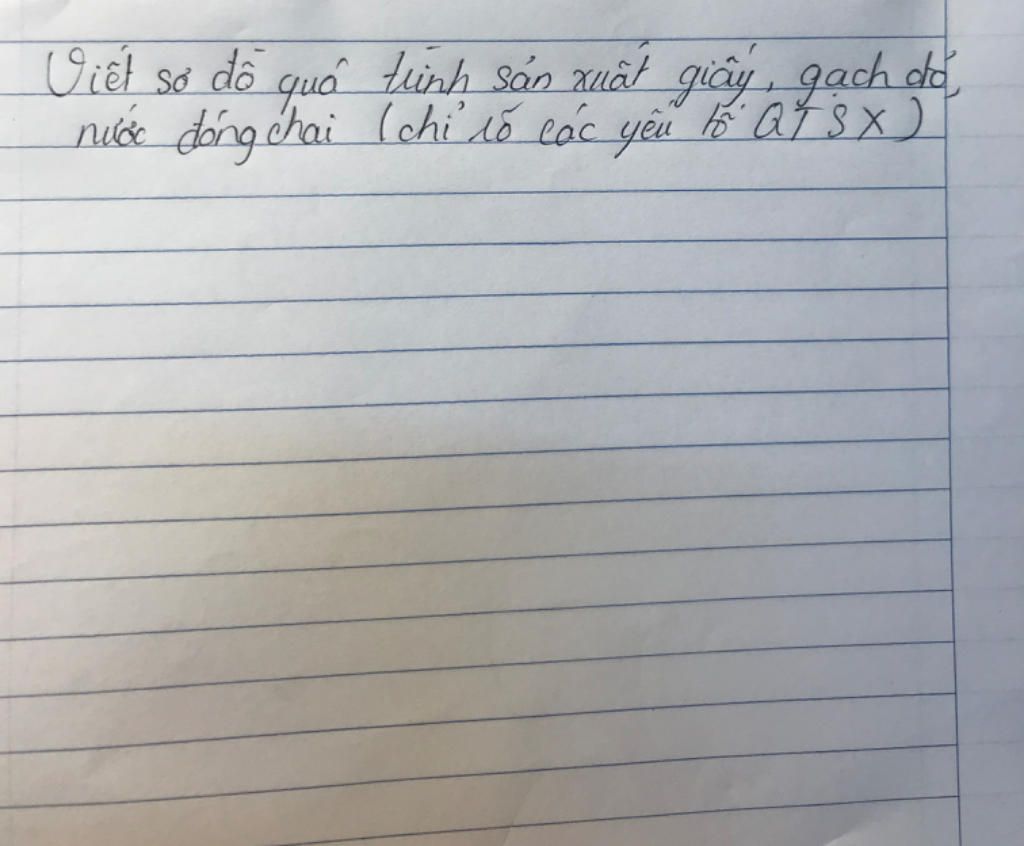 Viết sơ đồ quá trình sản xuất giấy, gạch đỏ,
nước đóng chai (chỉ rõ các yếu tố QTSX)